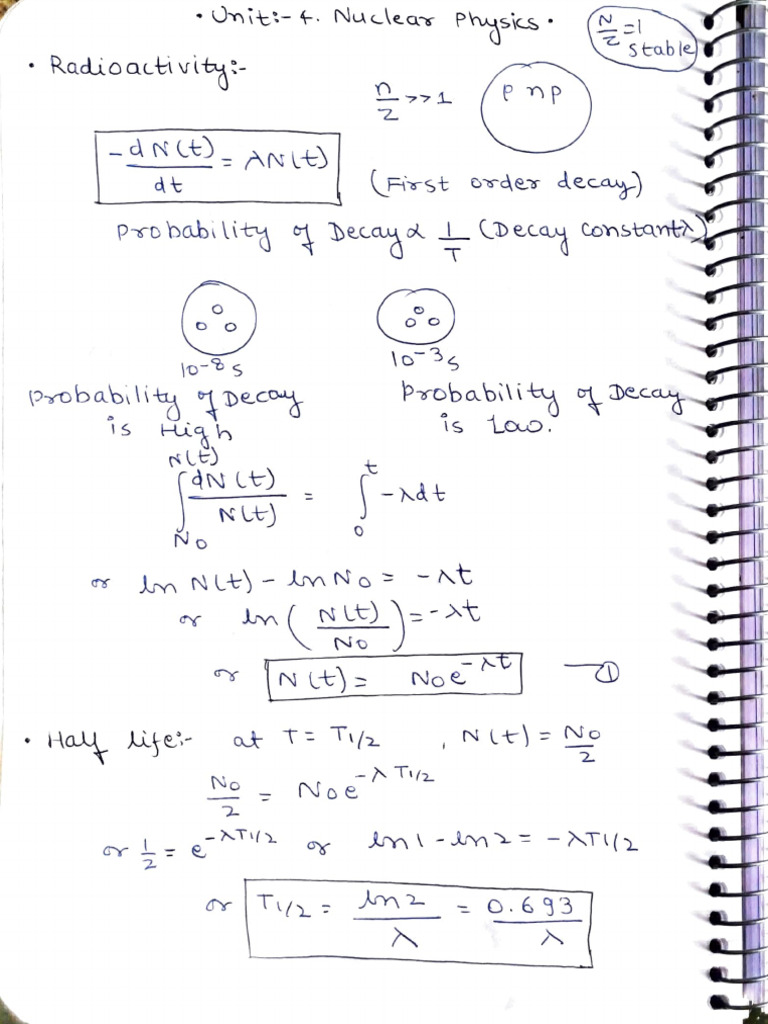 • Unit:- 4. Nuclear Physics •
N/Z = 1 stable
• Radioactivity:-
n/Z >> 1
p n p
-dN(t)/dt = λN(t)
(First order decay)
Probability of Decay α 1/T (Decay constant λ)
10-8 s
10-3 s
Probability of Decay is High
Probability of Decay is Low.
∫_{N0}^{N(t)} dN(t)/N(t) = ∫_0^t -λdt
or ln N(t) - ln N0 = -λt
or ln (N(t)/N0) = -λt
or N(t) = N0e^{-λt} — ①
• Half life:- at T = T1/2 , N(t) = N0/2
N0/2 = N0e^{-λT1/2}
or 1/2 = e^{-λT1/2} or ln1 - ln2 = -λT1/2
or T1/2 = ln2/λ = 0.693/λ